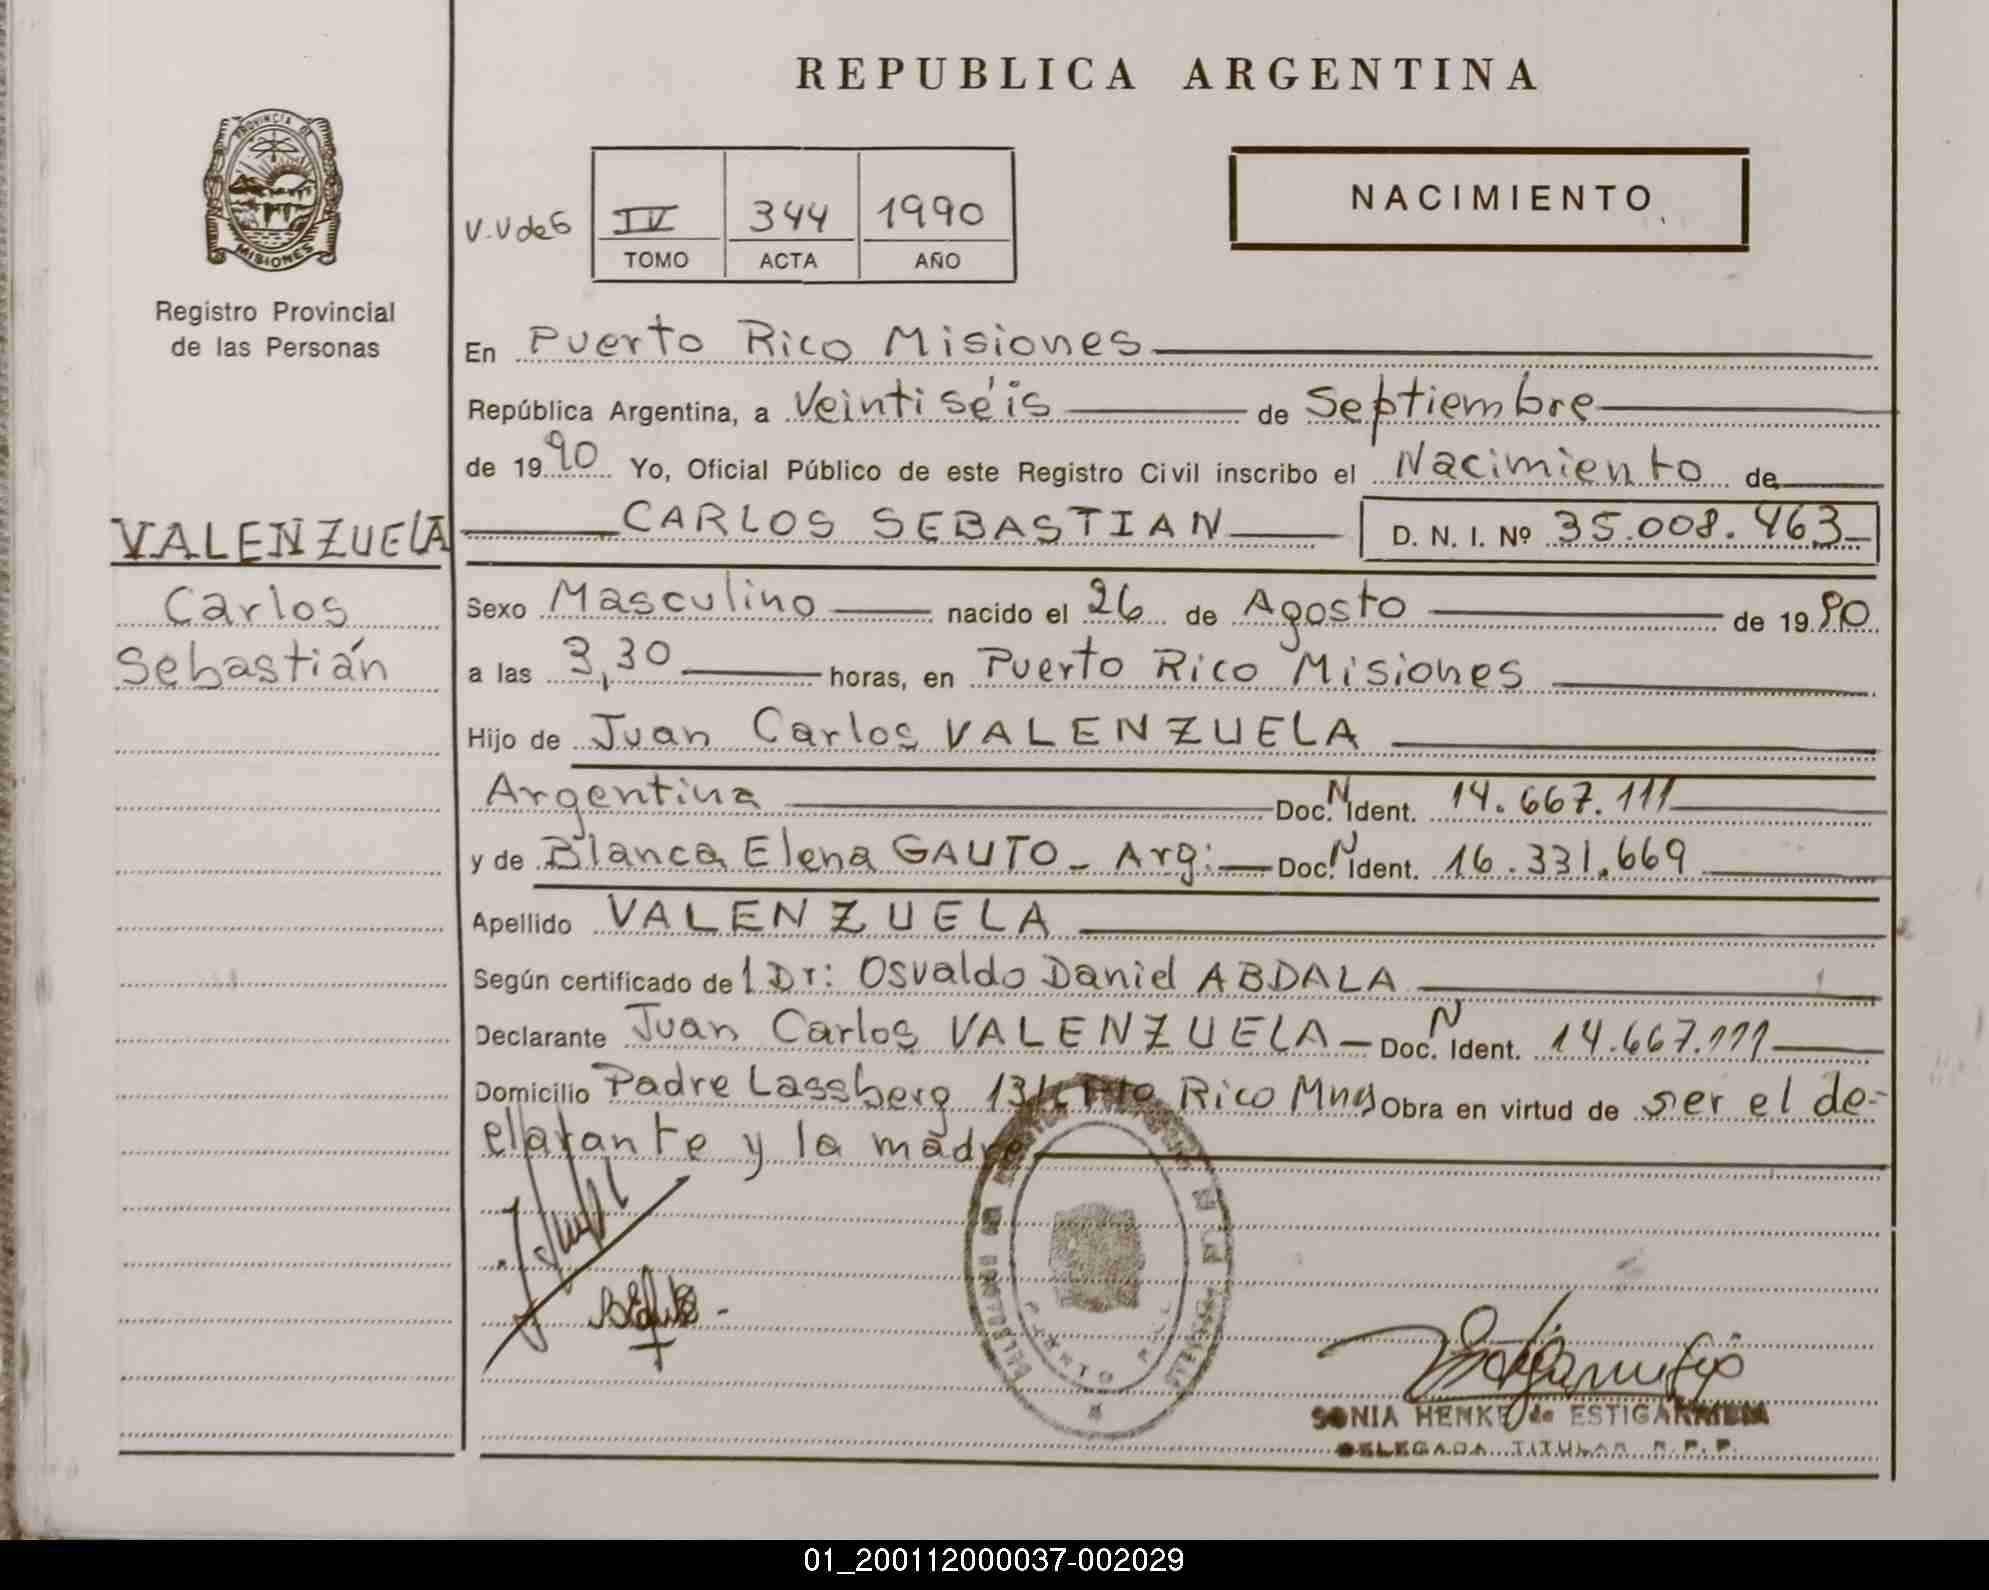 REPUBLICA ARGENTINA
PROVINCIA DE
MISIONES
Registro Provincial
de las Personas
V.V de G
IV 344 1990
TOMO ACTA AÑO
NACIMIENTO
En Puerto Rico Misiones
República Argentina, a Veintiséis de Septiembre
de 1990 Yo, Oficial Público de este Registro Civil inscribo el Nacimiento de
VALENZUELA
Carlos
Sebastián
CARLOS SEBASTIAN D. N. I. Nº 35.008.463
Sexo Masculino nacido el 26 de Agosto de 1990
a las 3,30 horas, en Puerto Rico Misiones
Hijo de Juan Carlos VALENZUELA
Argentina Doc. N Ident. 14.667.111
y de Blanca Elena GAUTO - Arg: Doc. N Ident. 16.331.669
Apellido VALENZUELA
Según certificado de l Dr: Osvaldo Daniel ABDALA
Declarante Juan Carlos VALENZUELA - Doc. N Ident. 14.667.111
Domicilio Padre Lassberg Pto Rico Mnes Obra en virtud de ser el de-
clarante y la madre
PUERTO RICO
SONIA HENKE de ESTIGARRIBIA
DELEGADA TITULAR R. P. P.
01_200112000037-002029